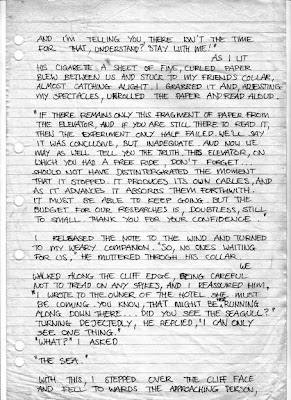 AND I'M TELLING YOU, THERE ISN'T THE TIME
FOR THAT, UNDERSTAND? STAY WITH ME!"
AS I LIT
HIS CIGARETTE A SHEET OF FINE, CURLED PAPER
BLEW BETWEEN US AND STUCK TO MY FRIEND'S COLLAR,
ALMOST CATCHING ALIGHT. I GRABBED IT AND, ADJUSTING
MY SPECTACLES, UNROLLED THE PAPER AND READ ALOUD:
"IF THERE REMAINS ONLY THIS FRAGMENT OF PAPER FROM
THE ELEVATOR, AND IF YOU ARE STILL THERE TO READ IT
THEN THE EXPERIMENT ONLY HALF FAILED. WE'LL SAY
IT WAS CONCLUSIVE, BUT INADEQUATE AND NOW WE
MAY AS WELL TELL YOU THE TRUTH. THIS ELEVATOR, ON
WHICH YOU HAD A FREE RIDE, DON'T FORGET,
SHOULD NOT HAVE DISTINTERGRATED THE MOMENT
THAT IT STOPPED. IT PRODUCES ITS OWN CABLES, AND
AS IT ADVANCES IT ABSORBS THEM FORTHWITH.
IT MUST BE ABLE TO KEEP GOING. BUT THE
BUDGET FOR OUR RESEARCHES IS, DOUBTLESS, STILL,
TO SMALL. THANK YOU FOR YOUR CONFIDENCE."
I RELEASED THE NOTE TO THE WIND AND TURNED
TO MY WEARY COMPANION. "SO, NO ONE'S WAITING
FOR US," HE MUTTERED THROUGH HIS COLLAR.
WE
WALKED ALONG THE CLIFF EDGE, BEING CAREFUL
NOT TO TREAD ON ANY SPIKES, AND I REASSURED HIM,
"I WROTE TO THE OWNER OF THE HOTEL. ONE MUST
BE COMING. YOU KNOW, THAT MIGHT BE RUNNING
ALONG DOWN THERE... DID YOU SEE THE SEAGULL?"
TURNING DEJECTEDLY, HE REPLIED, "I CAN ONLY
SEE ONE THING."
"WHAT?" I ASKED
"THE SEA."
WITH THIS, I STEPPED OVER THE CLIFF FACE
AND FELL TO WARDS THE APPROACHING PERSON,